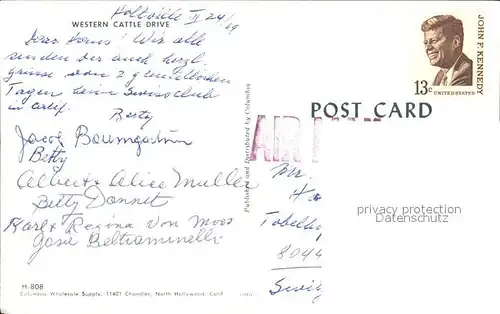 Holtville II 24/69
WESTERN CATTLE DRIVE
Dear Hans! Wir alle
senden dir auch herzl.
Grüsse von 2 gemütlichen
Tagen beim Swissclub
in Calif. Berty
Jacob Baumgartner
Betty
Albert & Alice Muller
Betty Donnet
Karl & Regina von Moos
José Beltraminelli
H-808
Columbia Wholesale Supply, 11401 Chandler, North Hollywood, Calif.
Published and Distributed by Columbia
JOHN F. KENNEDY
13c
UNITED STATES
POST CARD
AIR MAIL
Mr.
Ha
Tobelh
8044
privacy protection
Datenschutz